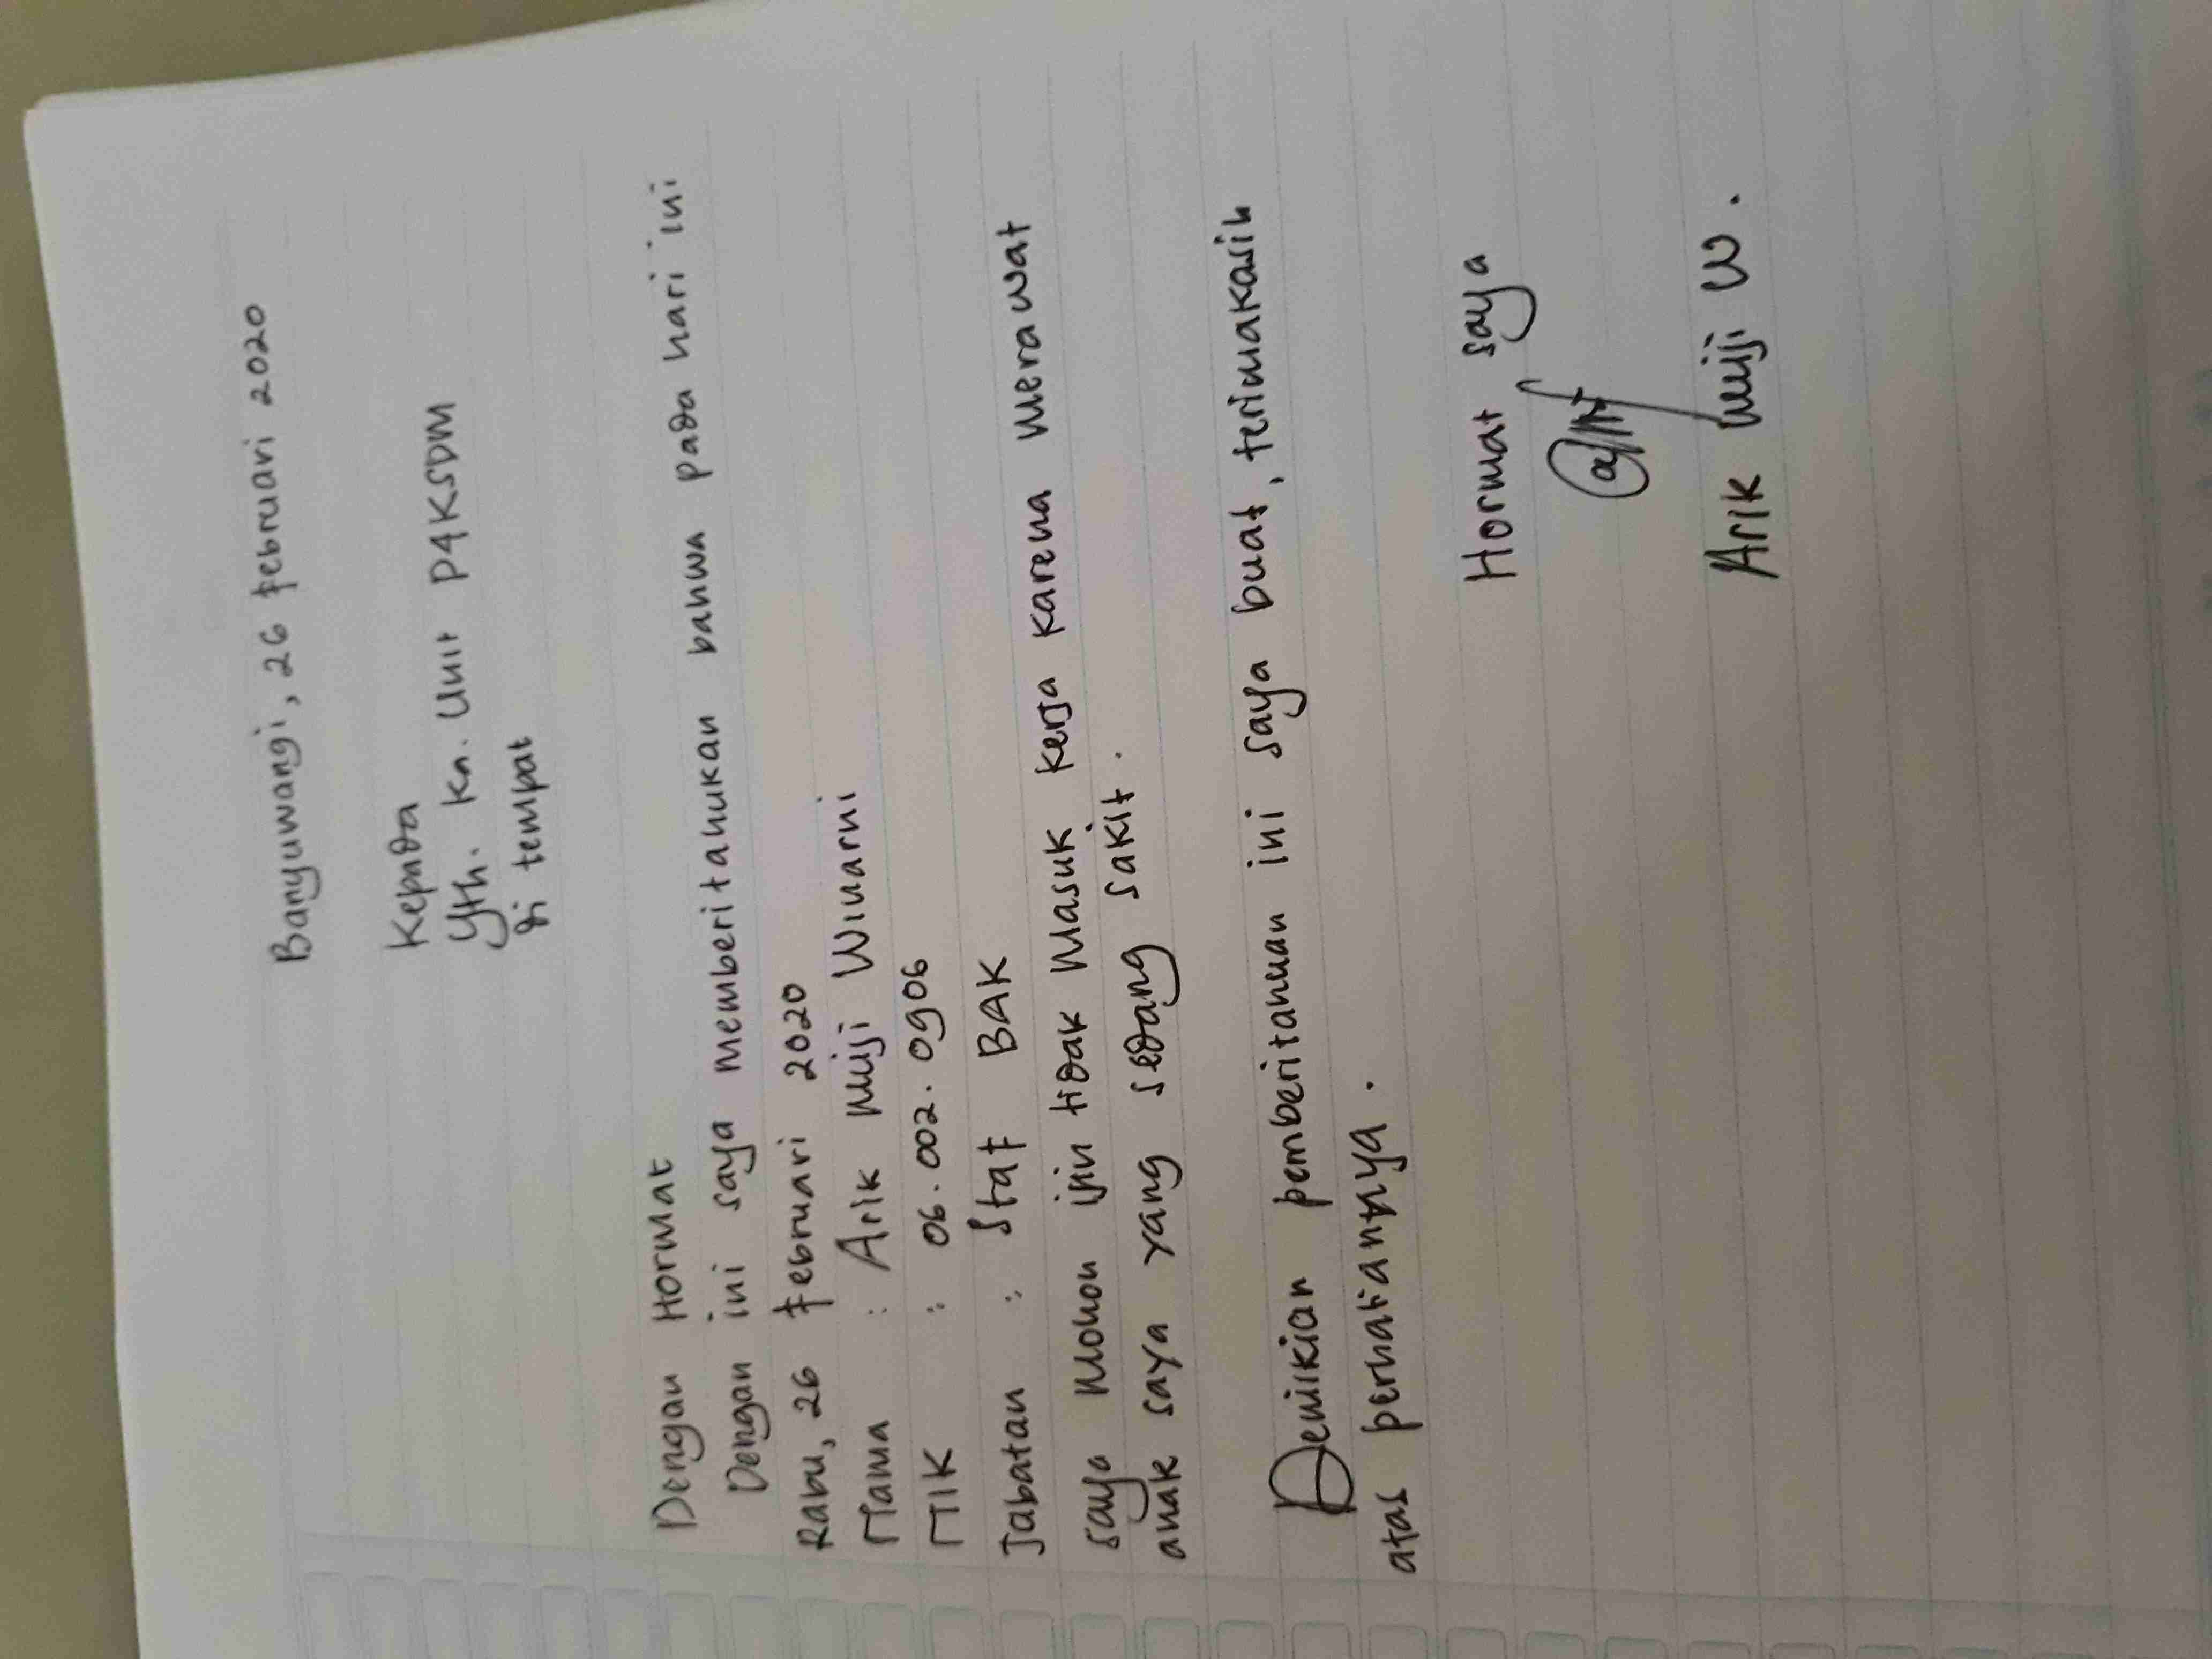 Banyuwangi, 26 Februari 2020
Kepada
Yth. Ka. Unit P4KSDM
di tempat
Dengan Hormat
Dengan ini saya memberitahukan bahwa pada hari ini
Rabu, 26 Februari 2020
Nama : Arik Muji Winarni
NIK : 06.002.0906
Jabatan : Staf BAK
saya mohon ijin tidak masuk kerja karena merawat
anak saya yang sedang sakit.
Demikian pemberitahuan ini saya buat, terimakasih
atas perhatiannya.
Hormat saya
Arik Muji W.